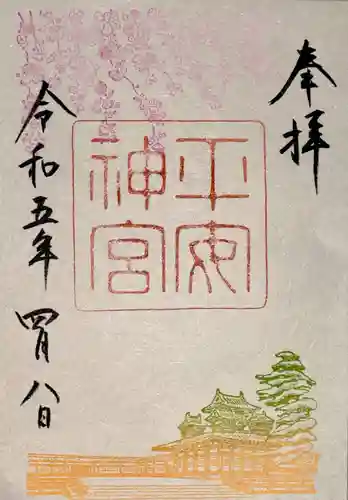 奉拝
平安
神宮
令和五年 四月八日